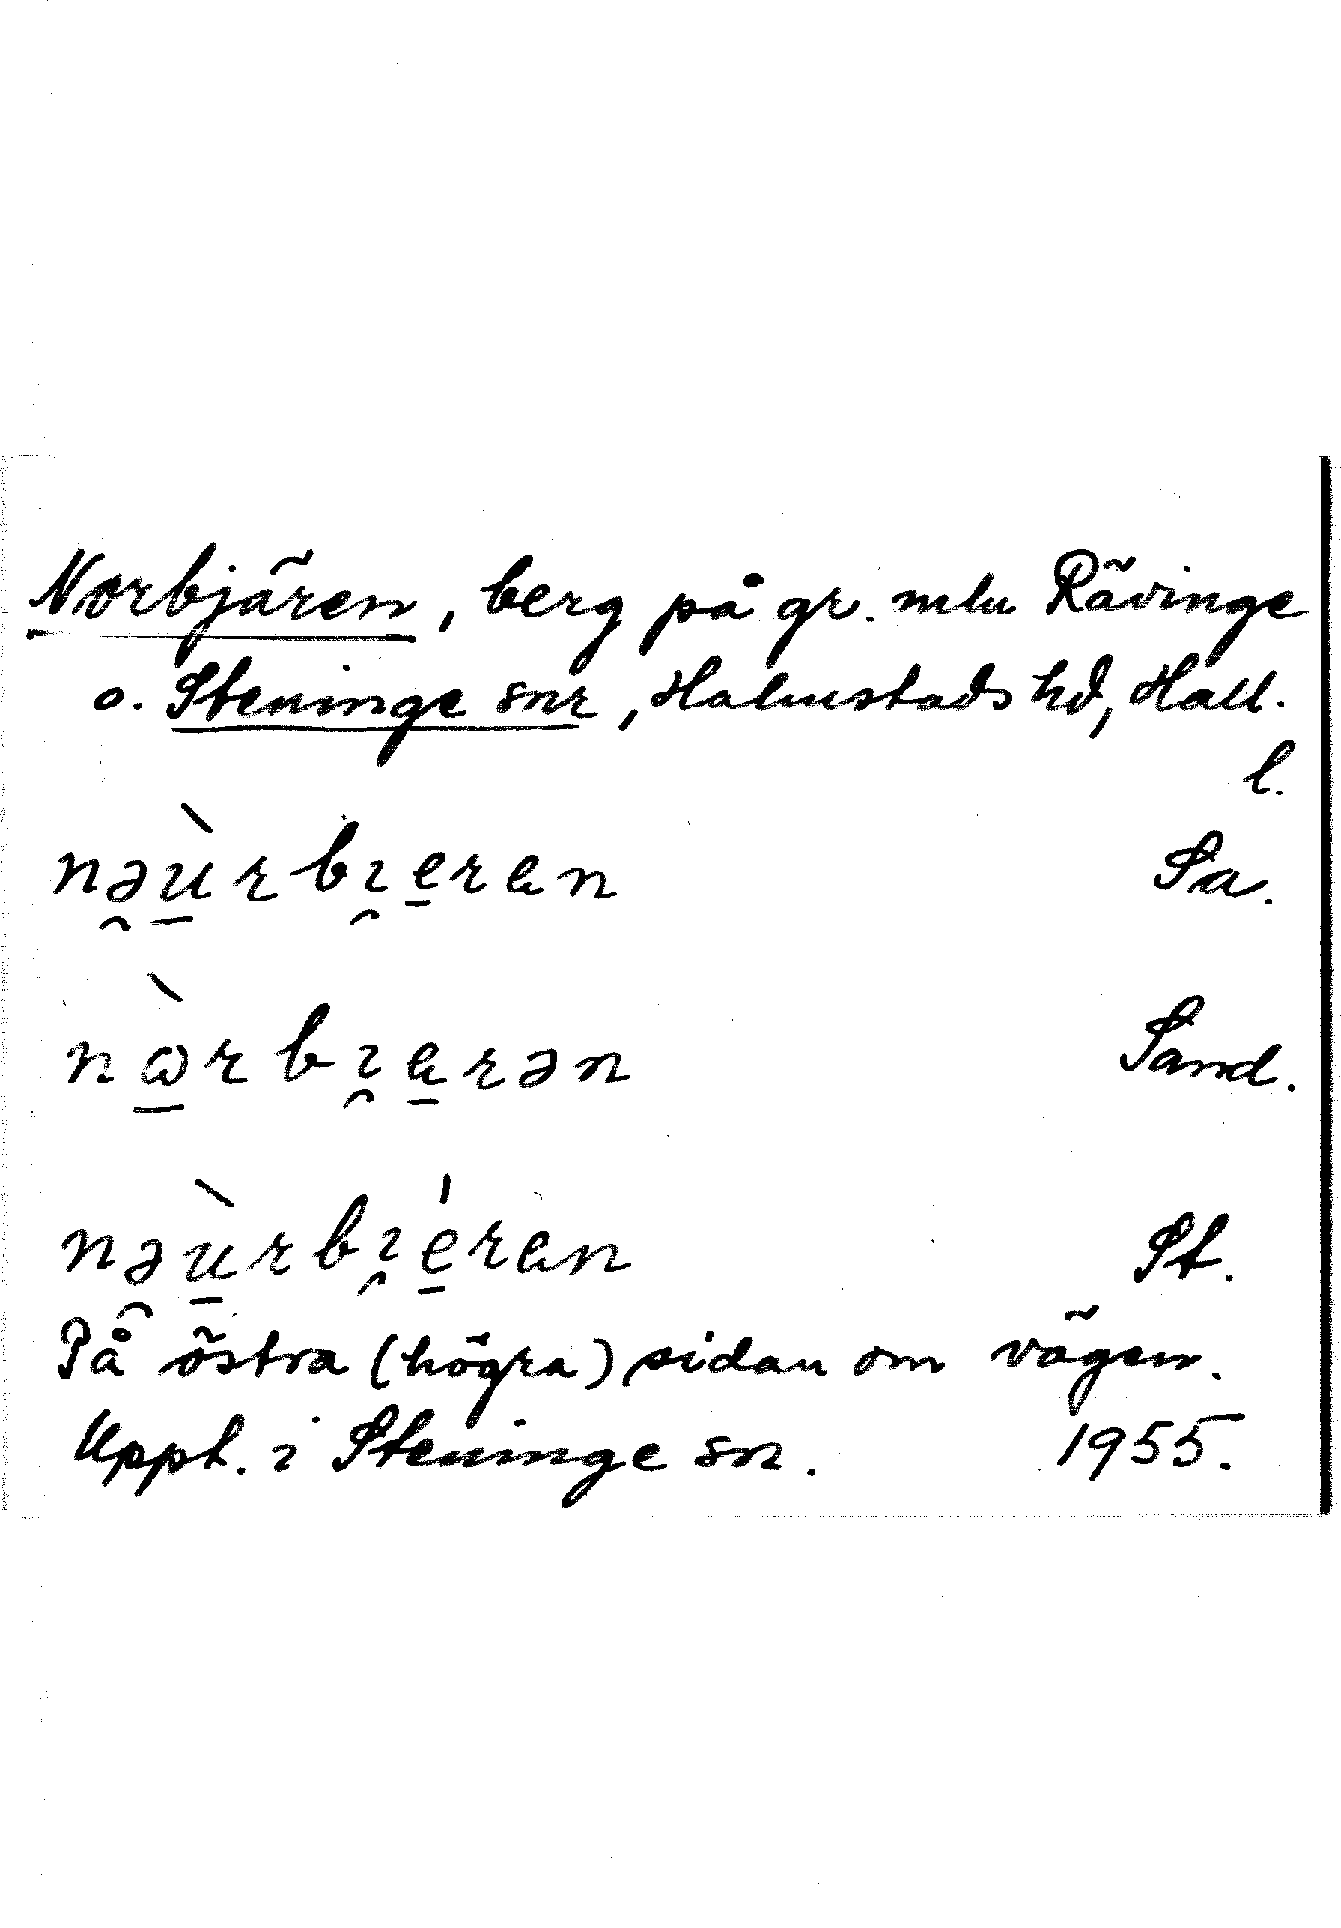 Norbjären, berg på gr. mlu Rävinge
o. Steninge snr, Halmstads hd, Hall.
l.
nə̯ùrbɪ̯eran Sa.
nɷ̀rbɪ̯ärən Sand.
nə̯ùrbɪ̯éran St.
På östra (högra) sidan om vägen.
Uppt. i Steninge sn. 1955.